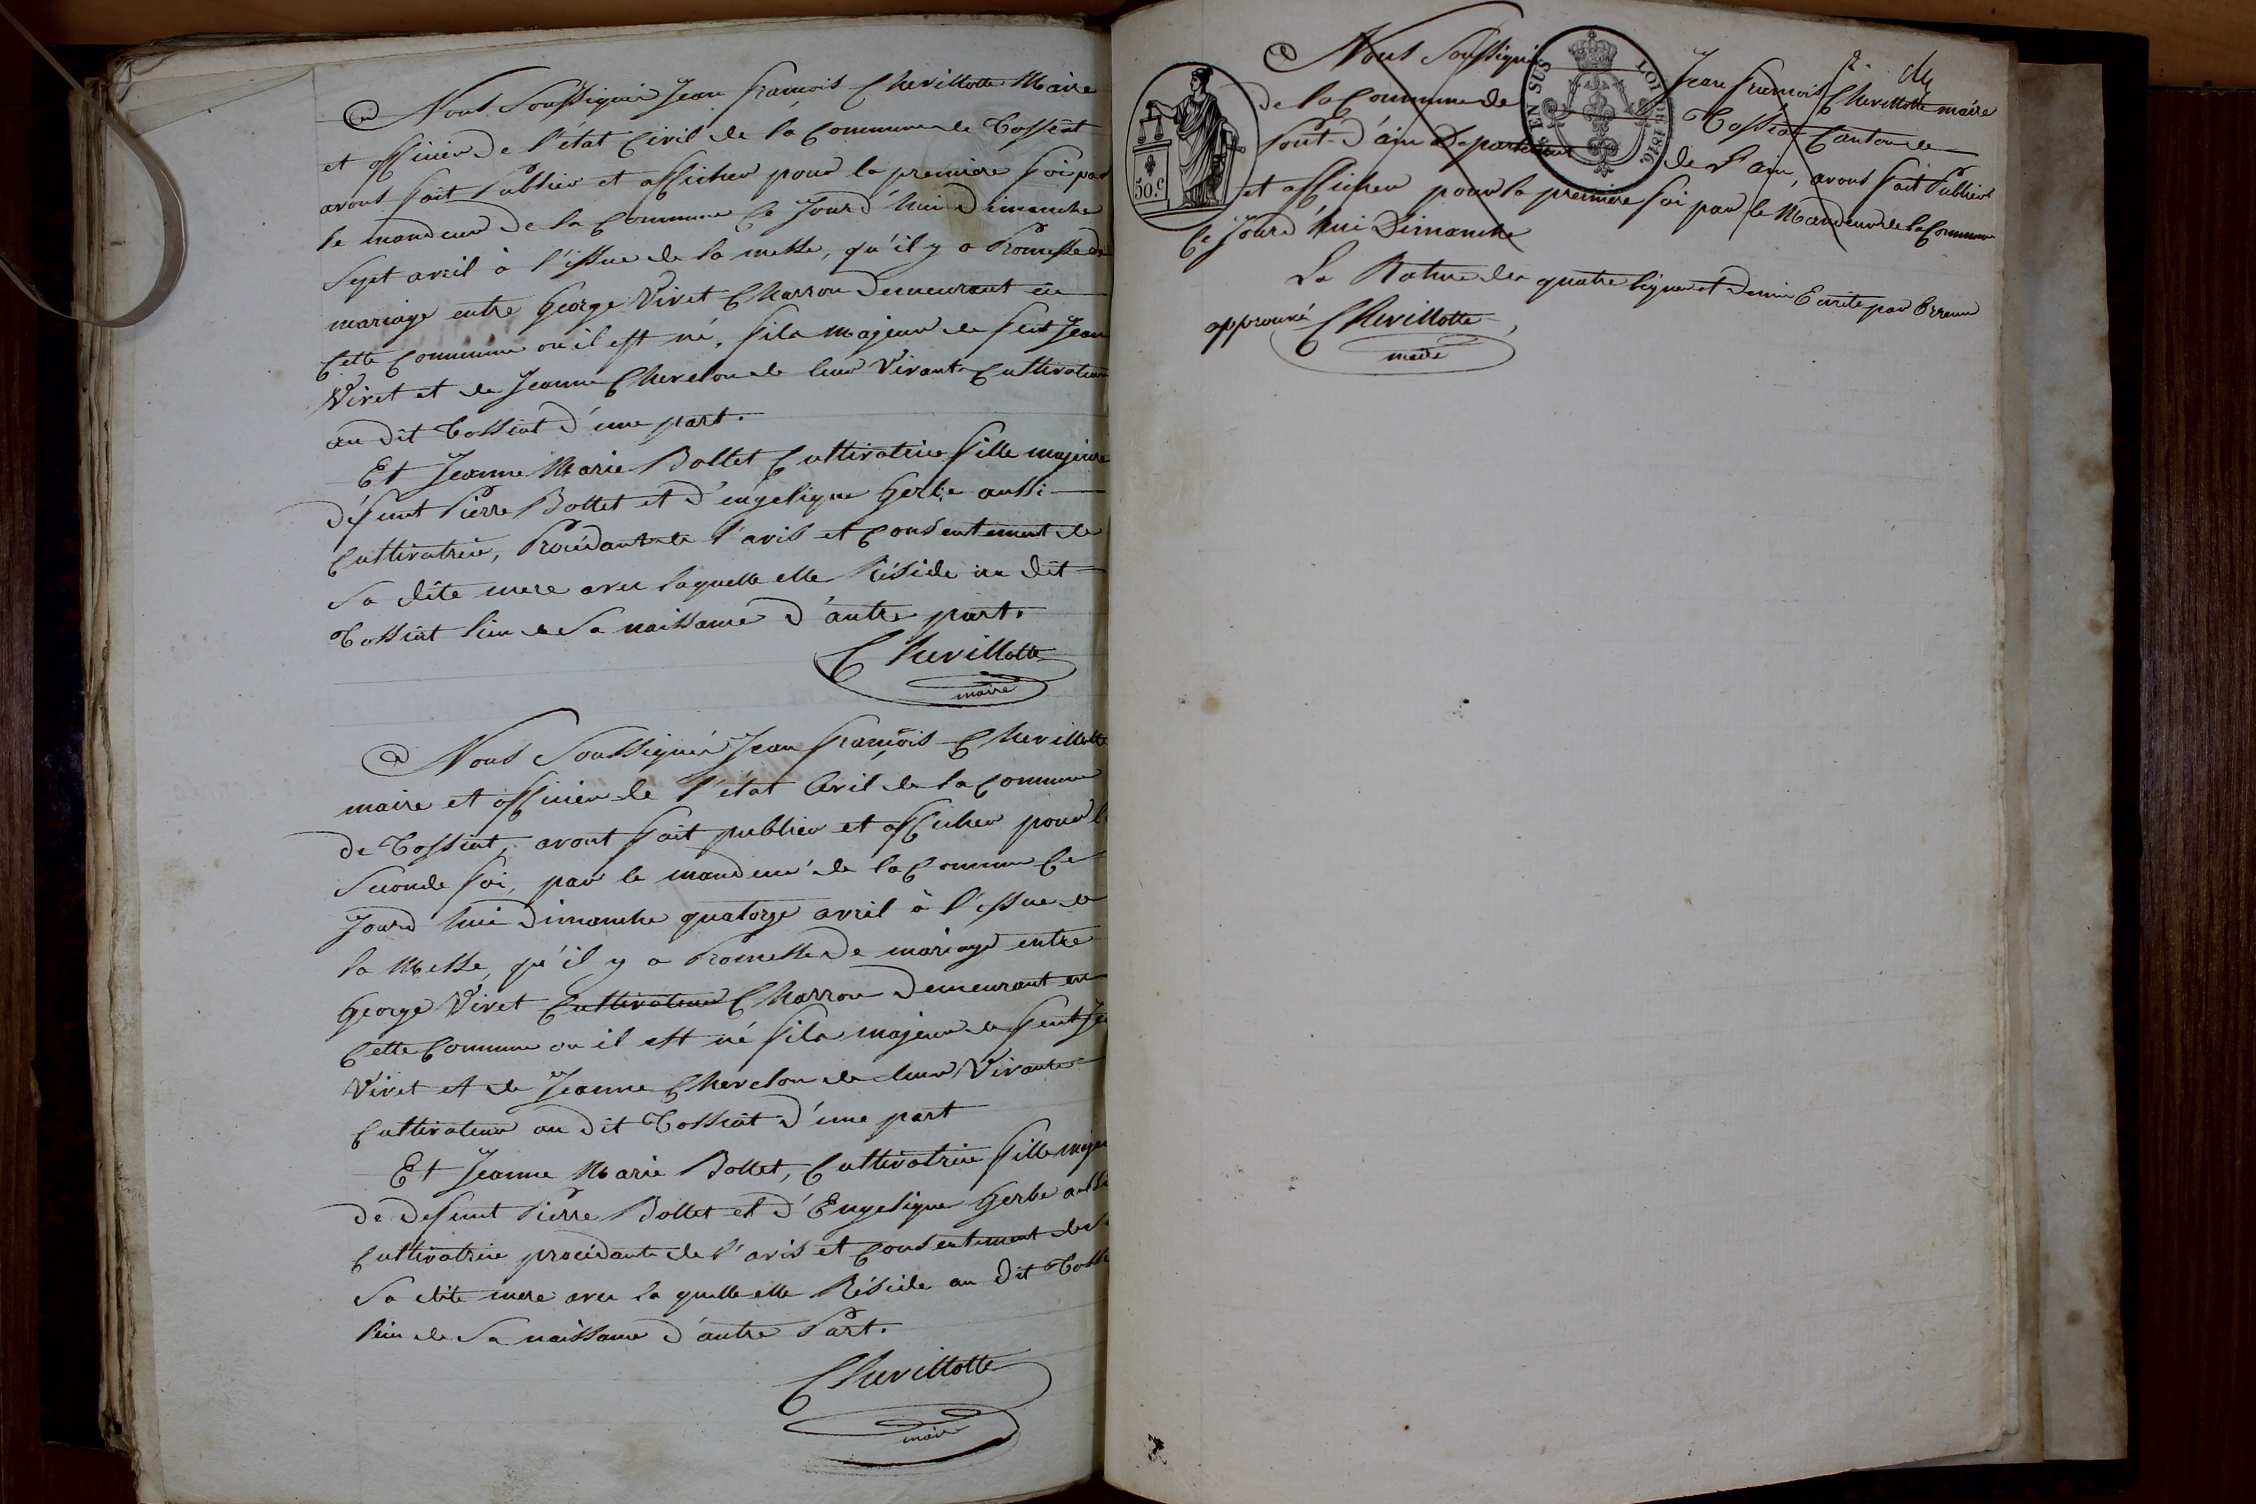 Nous Soussignés Jean françois Chevillotte Maire
et officier de l'état Civil de la Commune de Tossiat
avons fait Publier et afficher pour la premiere foi par
le mandeur de la Commune Ce Jourd'hui Dimanche
Sept avril à l'issue de la messe, qu'il y a Promesse de
mariage entre George Viret Charron demeurant en
Cette Commune ou il est né, fils majeur de feut Jean
Viret et de Jeanne Cherelon de leur Vivant Cultivateur
au dit Tossiat d'une part.
Et Jeanne Marie Bottet Cultivatrice fille majeure
défunt Pierre Bottet et d'engelique Gerbe aussi
Cultivatrice, Procédante de l'avis et Consentement de
Sa dite mere avec laquelle elle Réside au dit
Tossiat lieu de Sa naissance d'autre part.
Chevillotte
maire
Nous Soussignés Jean françois Chevillotte
maire et officier de l'état Civil de la Commune
de Tossiat, avont fait publier et afficher pour la
Seconde foi, par le mandeur de la Commune Ce
Jourd'hui Dimanche quatorze avril à l'issue de
la Messe, qu'il y a Promesse de mariage entre
George Viret Cultivateur Charron Demeurant en
Cette Commune ou il est né fils majeur de feut Je
Viret et de Jeanne Cherelon de leur Vivante
Cultivateur au dit Tossiat d'une part
Et Jeanne Marie Bottet, Cultivatrice fille maje
de defunt Pierre Bottet et d'Engelique Gerbe aussi
Cultivatrice procédante de l'avis et Consentement de
Sa dite mere avec la quelle elle Réside au dit Toss
lieu de Sa naissance d'autre Part.
Chevillotte
maire
Nous Soussignés Jean francois Chevillotte maire
de la Commune de Tossiat Canton de
Pont-d'ain Departement de l'ain, avons fait Publier
et afficher pour la premiere foi par le Mandeur de la Commune
Ce Jourd'hui Dimanche
La Rature des quatre lignes et demie Ecrite par Erreur
approuvé Chevillotte
maire
50.C
EN SUS
LOI DE 1816.